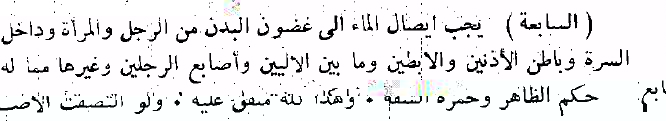 ( السابعة ) يجب ايصال الماء الى غضون البدن من الرجل والمرأة وداخل
السرة وباطن الأذنين والابطين وما بين الاليين وأصابع الرجلين وغيرها مما له
حكم الظاهر وحمرة الشفة . وهذا كله متفق عليه . ولو التصقت الاصـ
ابع